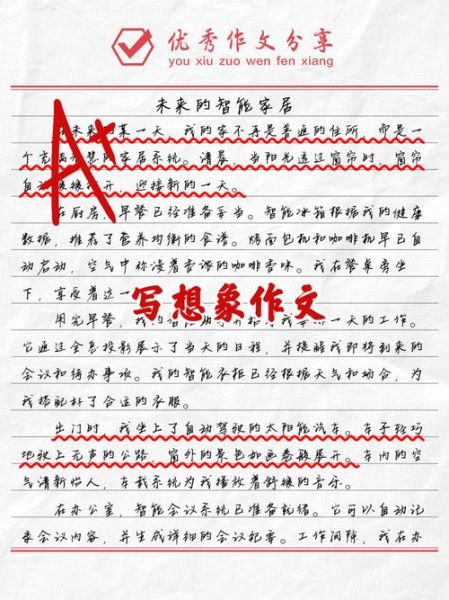 优秀作文分享
you xiu zuo wen fen xiang
未来的智能家居
A+
未来的某一天，我的家不再是普通的住所，而是一
个充满智慧的家居系统。清晨，当阳光透过窗帘时，窗帘
自动缓缓打开，迎接新的一天。
在厨房，早餐已经准备妥当。智能冰箱根据我的健康
数据，推荐了营养均衡的食谱。烤面包机和咖啡机早已自
动启动，空气中弥漫着香浓的咖啡香味。我在餐桌旁坐
下，享受着这一
写想象作文
用完早餐，我的 一天的工作。
它通过全息投影展示了当天的日程，并提醒我即将到来的
会议和待办事项。我的智能衣柜已经根据天气和场合，为
我搭配好了合适的衣服。
出门时，我坐上了自动驾驶的太阳能汽车。车子轻巧
地驶上无声的公路，窗外的景色如画卷般展开。车内的空
气清新怡人，车载系统为我播放着舒缓的音乐。
在办公室，智能会议系统已准备就绪。它可以自动记
录会议内容，并生成详细的会议纪要。工作间隙，我在办